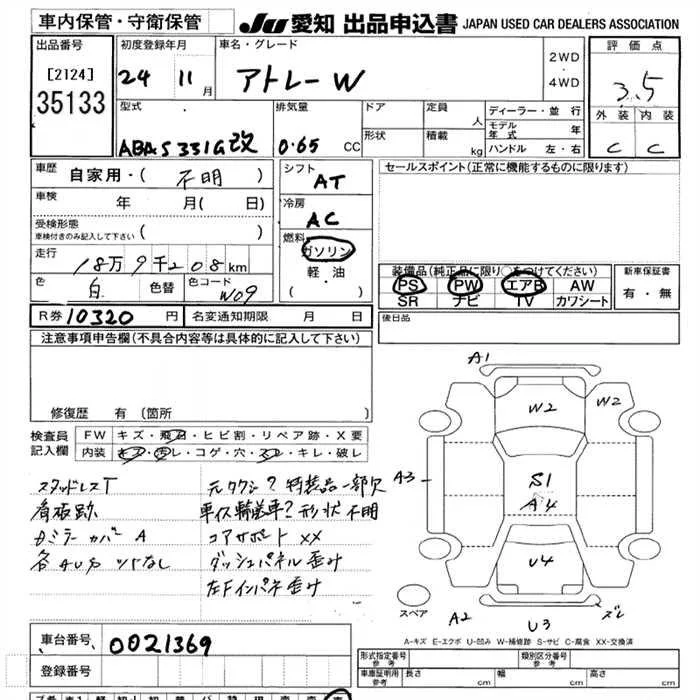 車内保管・守衛保管
JU 愛知 出品申込書 JAPAN USED CAR DEALERS ASSOCIATION
出品番号
[2124]
35133
初度登録年月
24 11月
車名・グレード
アトレーW
2WD
・
4WD
評価点
3.5
外装 内装
C C
型式
ABA-S331G改
排気量
0.65 CC
ドア
形状
定員 人
積載 kg
ディーラー・並行
モデル年式 年
ハンドル 左・右
車歴
自家用・( 不明 )
車検 年 月( 日)
受検形態
車検付きのみ記入して下さい ( )
走行
18万9千208km
色 白 色替 色コード W09
シフト
AT
冷房
AC
燃料
ガソリン
軽・油
( ・ )
セールスポイント(正常に機能するものに限ります)
装備品(純正品に限り○をつけてください)
PS PW エアB AW
SR ナビ TV カワシート
新車保証書
有・無
R券 10320 円 名変通知期限 月 日
後日品
注意事項申告欄(不具合内容等は具体的に記入して下さい)
修復歴 有(箇所 )
検査員
記入欄
FW キズ・飛石・ヒビ割・リペア跡・X要
内装 キズ・汚レ・コゲ・穴・スレ・キレ・破レ
スタッドレスT
看板跡
ドミラーカバーA
元タクシ? 特装品一部欠
車イス輸送車? 形状不明
コアサポートXX
ダッシュパネル歪み
左Fインパネ歪み
A1
W2 W2
A3
S1
A4
U4
スペア
A2
U3
ズレ
A-キズ E-エクボ U-凹み W-補修跡 S-サビ C-腐食 XX-交換済
車台番号 0021369
登録番号
形式指定番号 参考
類別区分番号 参考
車庫証明用 参考 長さ cm 幅 cm 高さ cm